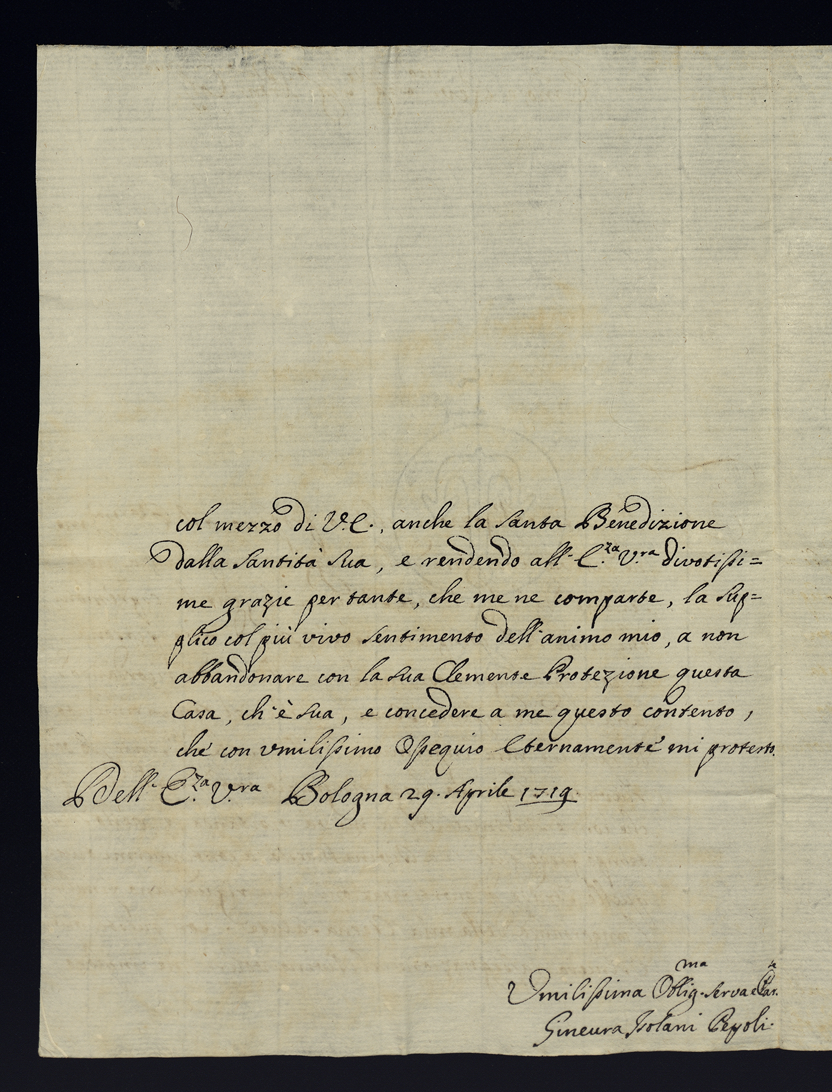 col mezzo di V. E., anche la Santa Benedizione
dalla Santità Sua, e rendendo all' E.za V.ra divotissi=
me grazie per tante, che me ne comparte, la sup=
plico col più vivo sentimento dell'animo mio, a non
abbandonare con la sua Clemente Protezione questa
Casa, ch'è sua, e concedere a me questo contento,
che con umilissimo Ossequio Eternamente mi protesto.
Dell' E.za V.ra Bologna 29. Aprile 1719.
Umilissima Obblig.ma Serva e
Gineura Isolani Pepoli.